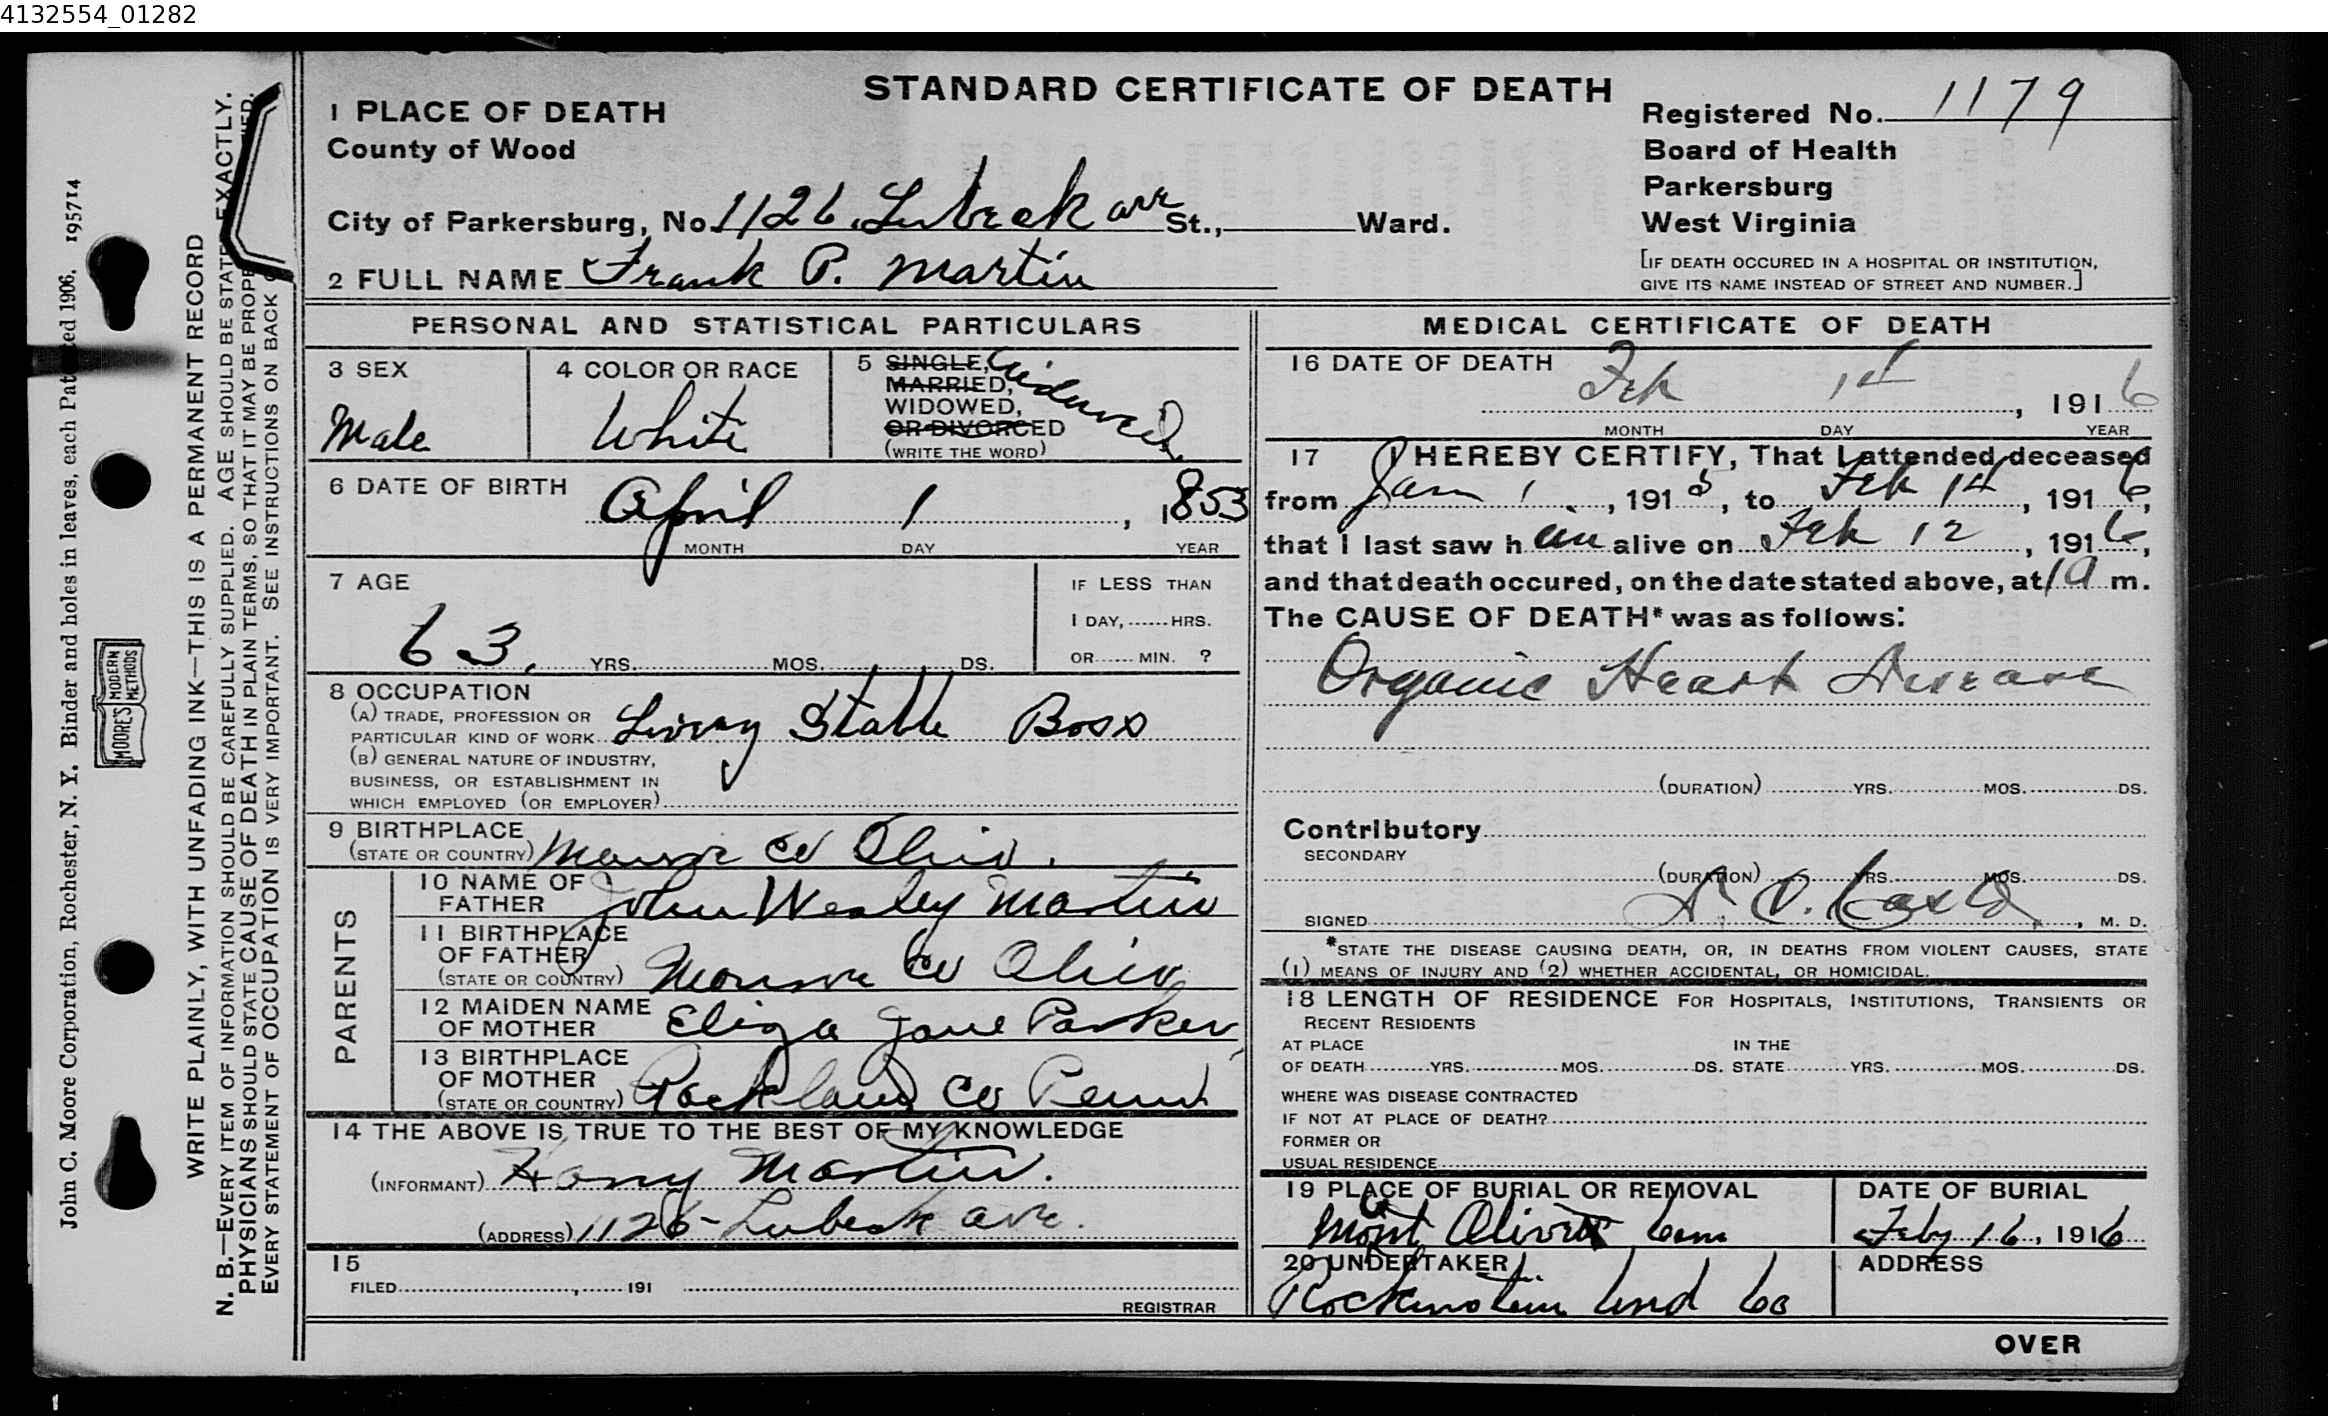 4132554_01282
STANDARD CERTIFICATE OF DEATH
1 PLACE OF DEATH
County of Wood
City of Parkersburg, No. 1126 Lubeck ave St., Ward.
2 FULL NAME Frank P. Martin
Registered No. 1179
Board of Health
Parkersburg
West Virginia
[IF DEATH OCCURED IN A HOSPITAL OR INSTITUTION,
GIVE ITS NAME INSTEAD OF STREET AND NUMBER.]
PERSONAL AND STATISTICAL PARTICULARS
3 SEX
Male
4 COLOR OR RACE
White
5 SINGLE,
MARRIED,
WIDOWED,
OR DIVORCED
(WRITE THE WORD)
Widowed
6 DATE OF BIRTH
April 1, 1853
MONTH DAY YEAR
7 AGE
63 YRS. MOS. DS.
IF LESS THAN
1 DAY, HRS.
OR MIN. ?
8 OCCUPATION
(A) TRADE, PROFESSION OR
PARTICULAR KIND OF WORK Livry Stable Boss
(B) GENERAL NATURE OF INDUSTRY,
BUSINESS, OR ESTABLISHMENT IN
WHICH EMPLOYED (OR EMPLOYER)
9 BIRTHPLACE
(STATE OR COUNTRY) Monroe Co Ohio.
PARENTS
10 NAME OF
FATHER John Wesley Martin
11 BIRTHPLACE
OF FATHER
(STATE OR COUNTRY) Monroe Co Ohio
12 MAIDEN NAME
OF MOTHER Eliza Jane Parker
13 BIRTHPLACE
OF MOTHER
(STATE OR COUNTRY) Rockland Co Penn
14 THE ABOVE IS TRUE TO THE BEST OF MY KNOWLEDGE
(INFORMANT) Harry Martin.
(ADDRESS) 1126 - Lubeck ave.
15
FILED , 191
REGISTRAR
MEDICAL CERTIFICATE OF DEATH
16 DATE OF DEATH
Feb 14, 1916
MONTH DAY YEAR
17 I HEREBY CERTIFY, That I attended deceased
from Jan 1, 1915, to Feb 14, 1916,
that I last saw him alive on Feb 12, 1916,
and that death occured, on the date stated above, at 1 a m.
The CAUSE OF DEATH* was as follows:
Organic Heart Disease
(DURATION) YRS. MOS. DS.
Contributory
SECONDARY
(DURATION) YRS. MOS. DS.
SIGNED , M. D.
*STATE THE DISEASE CAUSING DEATH, OR, IN DEATHS FROM VIOLENT CAUSES, STATE
(1) MEANS OF INJURY AND (2) WHETHER ACCIDENTAL, OR HOMICIDAL.
18 LENGTH OF RESIDENCE FOR HOSPITALS, INSTITUTIONS, TRANSIENTS OR
RECENT RESIDENTS
AT PLACE
OF DEATH YRS. MOS. DS.
IN THE
STATE YRS. MOS. DS.
WHERE WAS DISEASE CONTRACTED
IF NOT AT PLACE OF DEATH?
FORMER OR
USUAL RESIDENCE
19 PLACE OF BURIAL OR REMOVAL
Mont Olivet Cem
DATE OF BURIAL
Feby 16, 1916
20 UNDERTAKER
Rockenstein Und Co
ADDRESS
OVER
John C. Moore Corporation, Rochester, N. Y. Binder and holes in leaves, each Patented 1906. 195714
MOORE'S MODERN METHODS
WRITE PLAINLY, WITH UNFADING INK—THIS IS A PERMANENT RECORD
N. B.—EVERY ITEM OF INFORMATION SHOULD BE CAREFULLY SUPPLIED. AGE SHOULD BE STATED EXACTLY.
PHYSICIANS SHOULD STATE CAUSE OF DEATH IN PLAIN TERMS, SO THAT IT MAY BE
EVERY STATEMENT OF OCCUPATION IS VERY IMPORTANT. SEE INSTRUCTIONS ON BACK